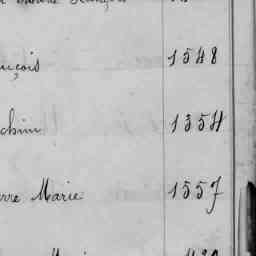 nçois 1548
chim 1354
rre Marie 1557